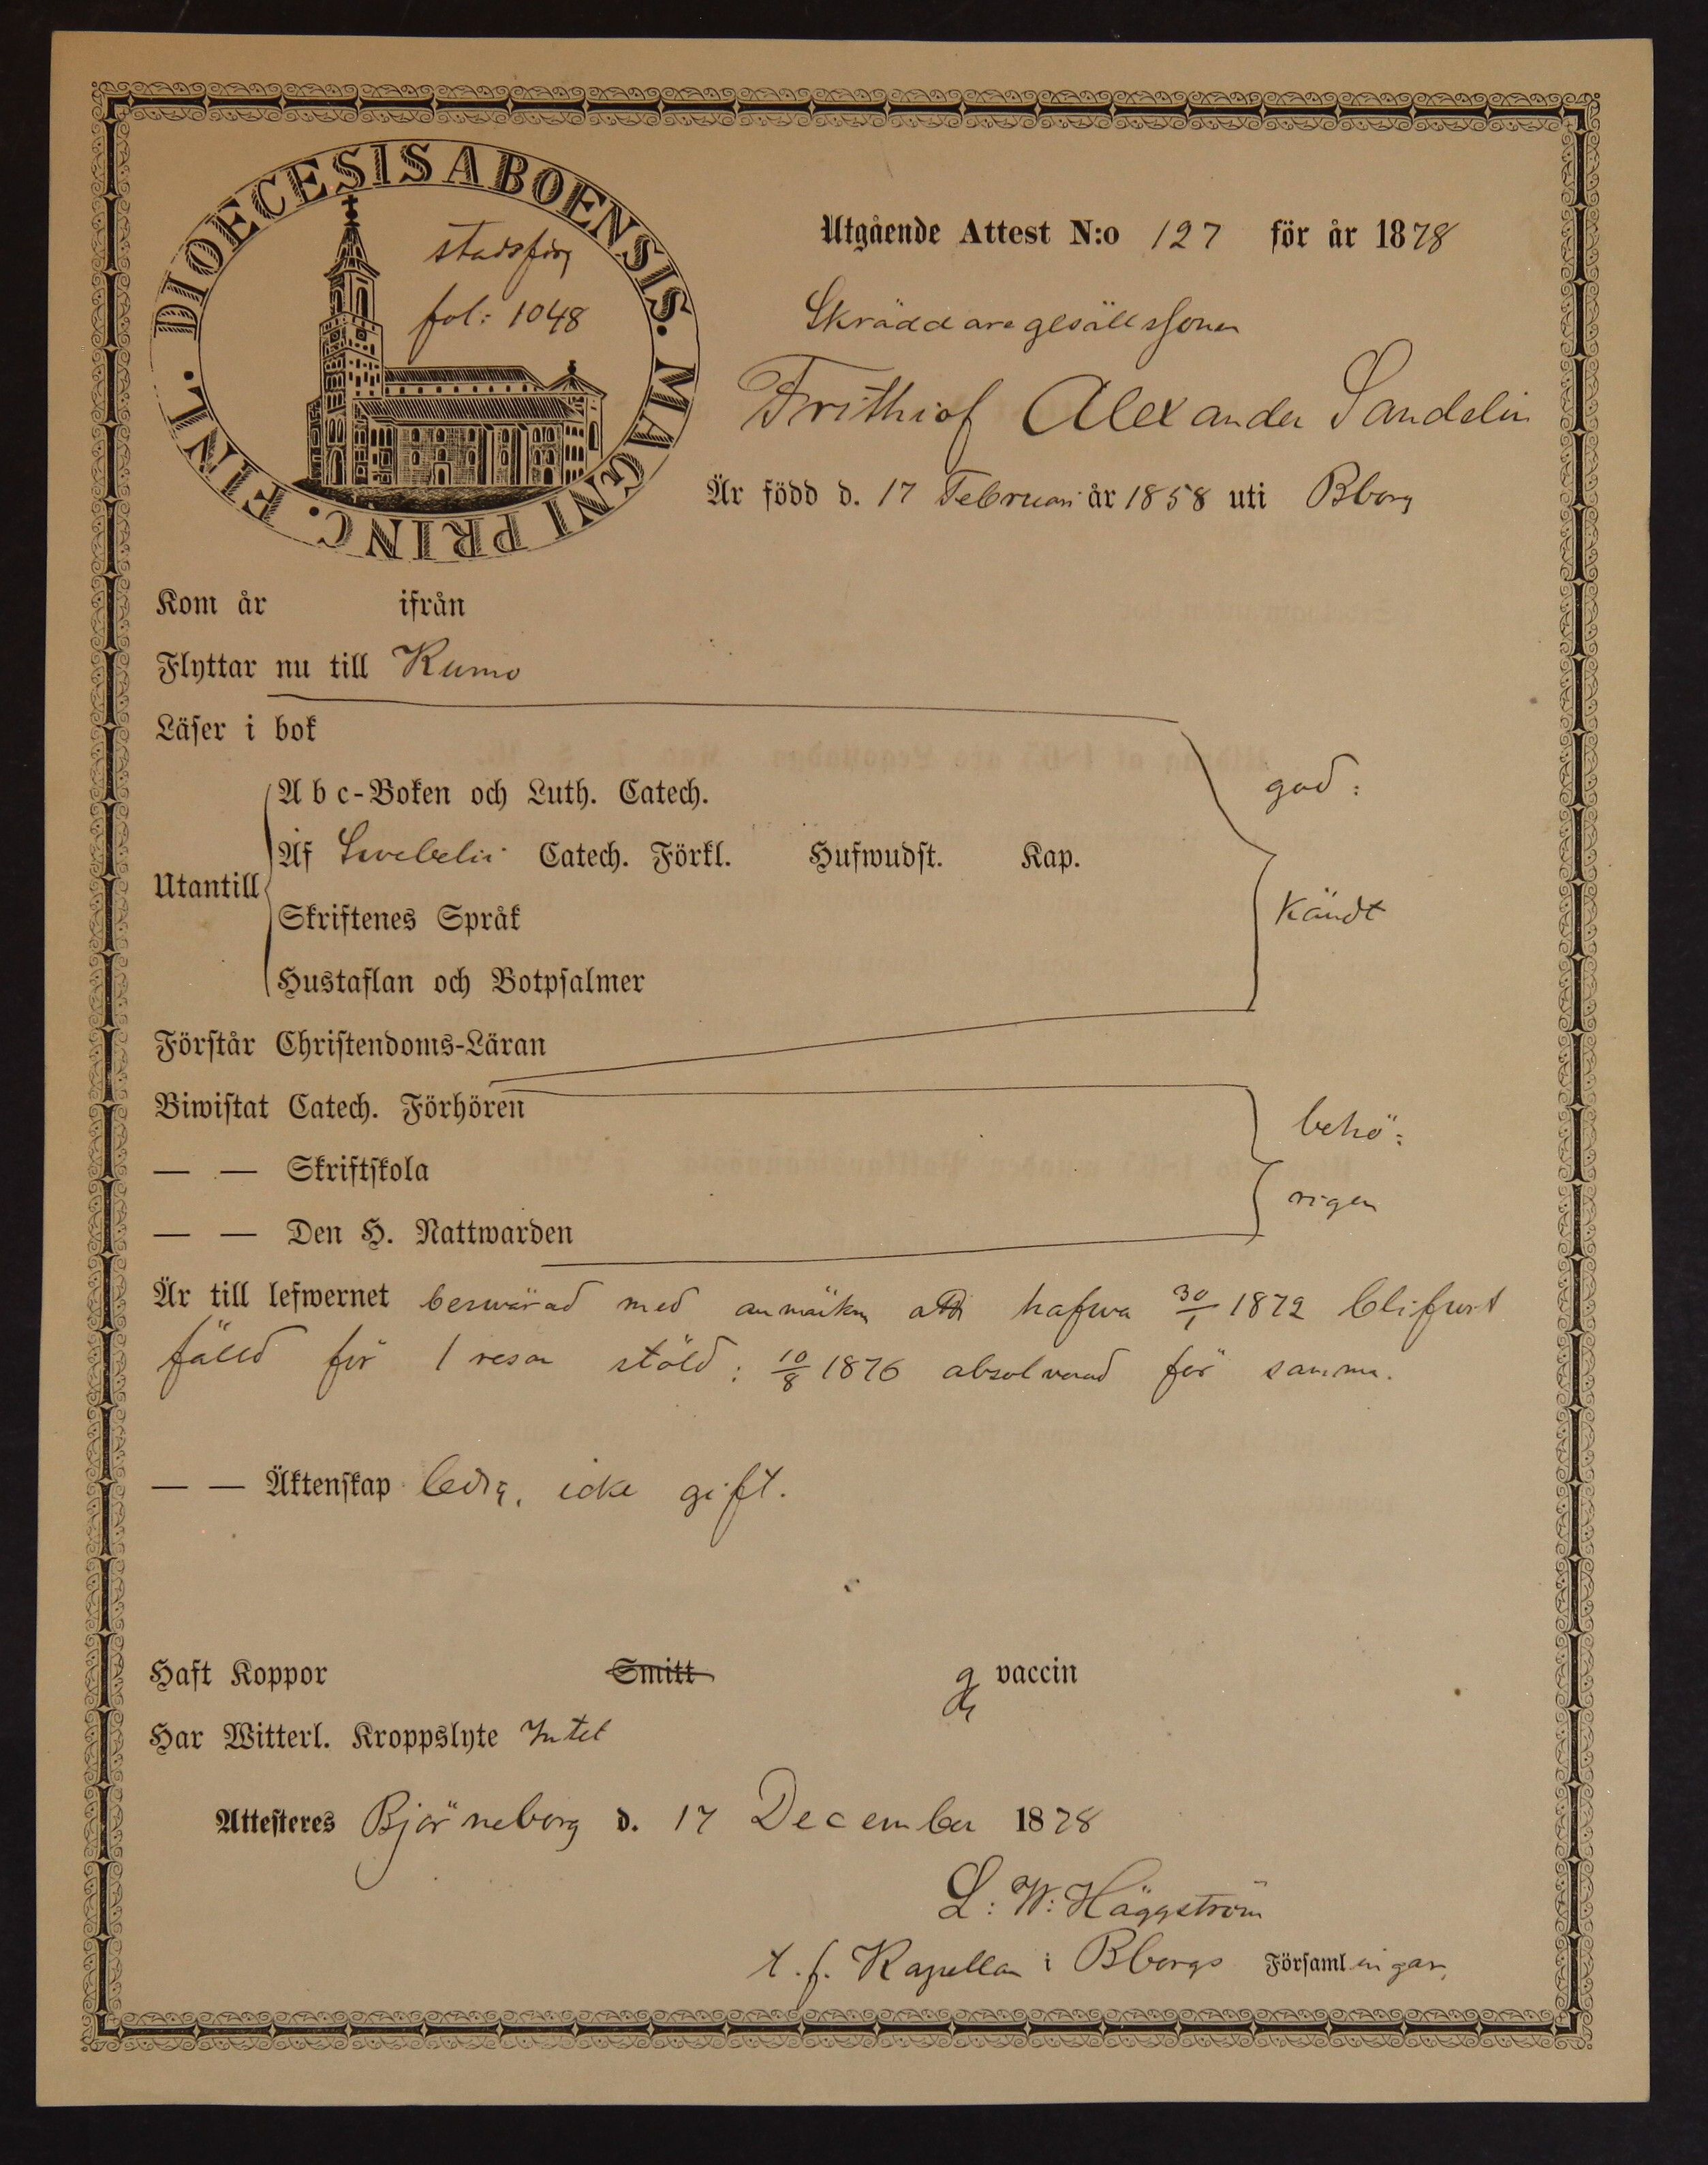 DIOECESIS ABOENSIS. MAGNI PRINC. FINL.
stadsförs
fol: 1048
Utgående Attest N:o 127 för år 1878
Skräddaregesällssonen
Frithiof Alexander Sandelin
Är född d. 17 Februari år 1858 uti Bborg
Kom år ifrån
Flyttar nu till Kumo
Läser i bok
god:
Utantill
A b c-Boken och Luth. Catech.
Af Svebelii Catech. Förkl. Hufwudst. Kap.
Skriftenes Språk
kändt
Hustaflan och Botpsalmer
Förstår Christendoms-Läran
Biwistat Catech. Förhören
behö:
— — Skriftskola
rigen
— — Den H. Nattwarden
Är till lefwernet beswärad med anmärkn att hafwa 30/1 1872 blifwit
fälld för 1 resan stöld: 10/8 1876 absolverad för samma.
— — Äktenskap ledig, icke gift.
Haft Koppor Smitt vaccin
Har Witterl. Kroppslyte Intet
Attesteres Björneborg d. 17 December 1878
L: W: Häggström
t. f. Kapellan i Bborgs Församlingar,